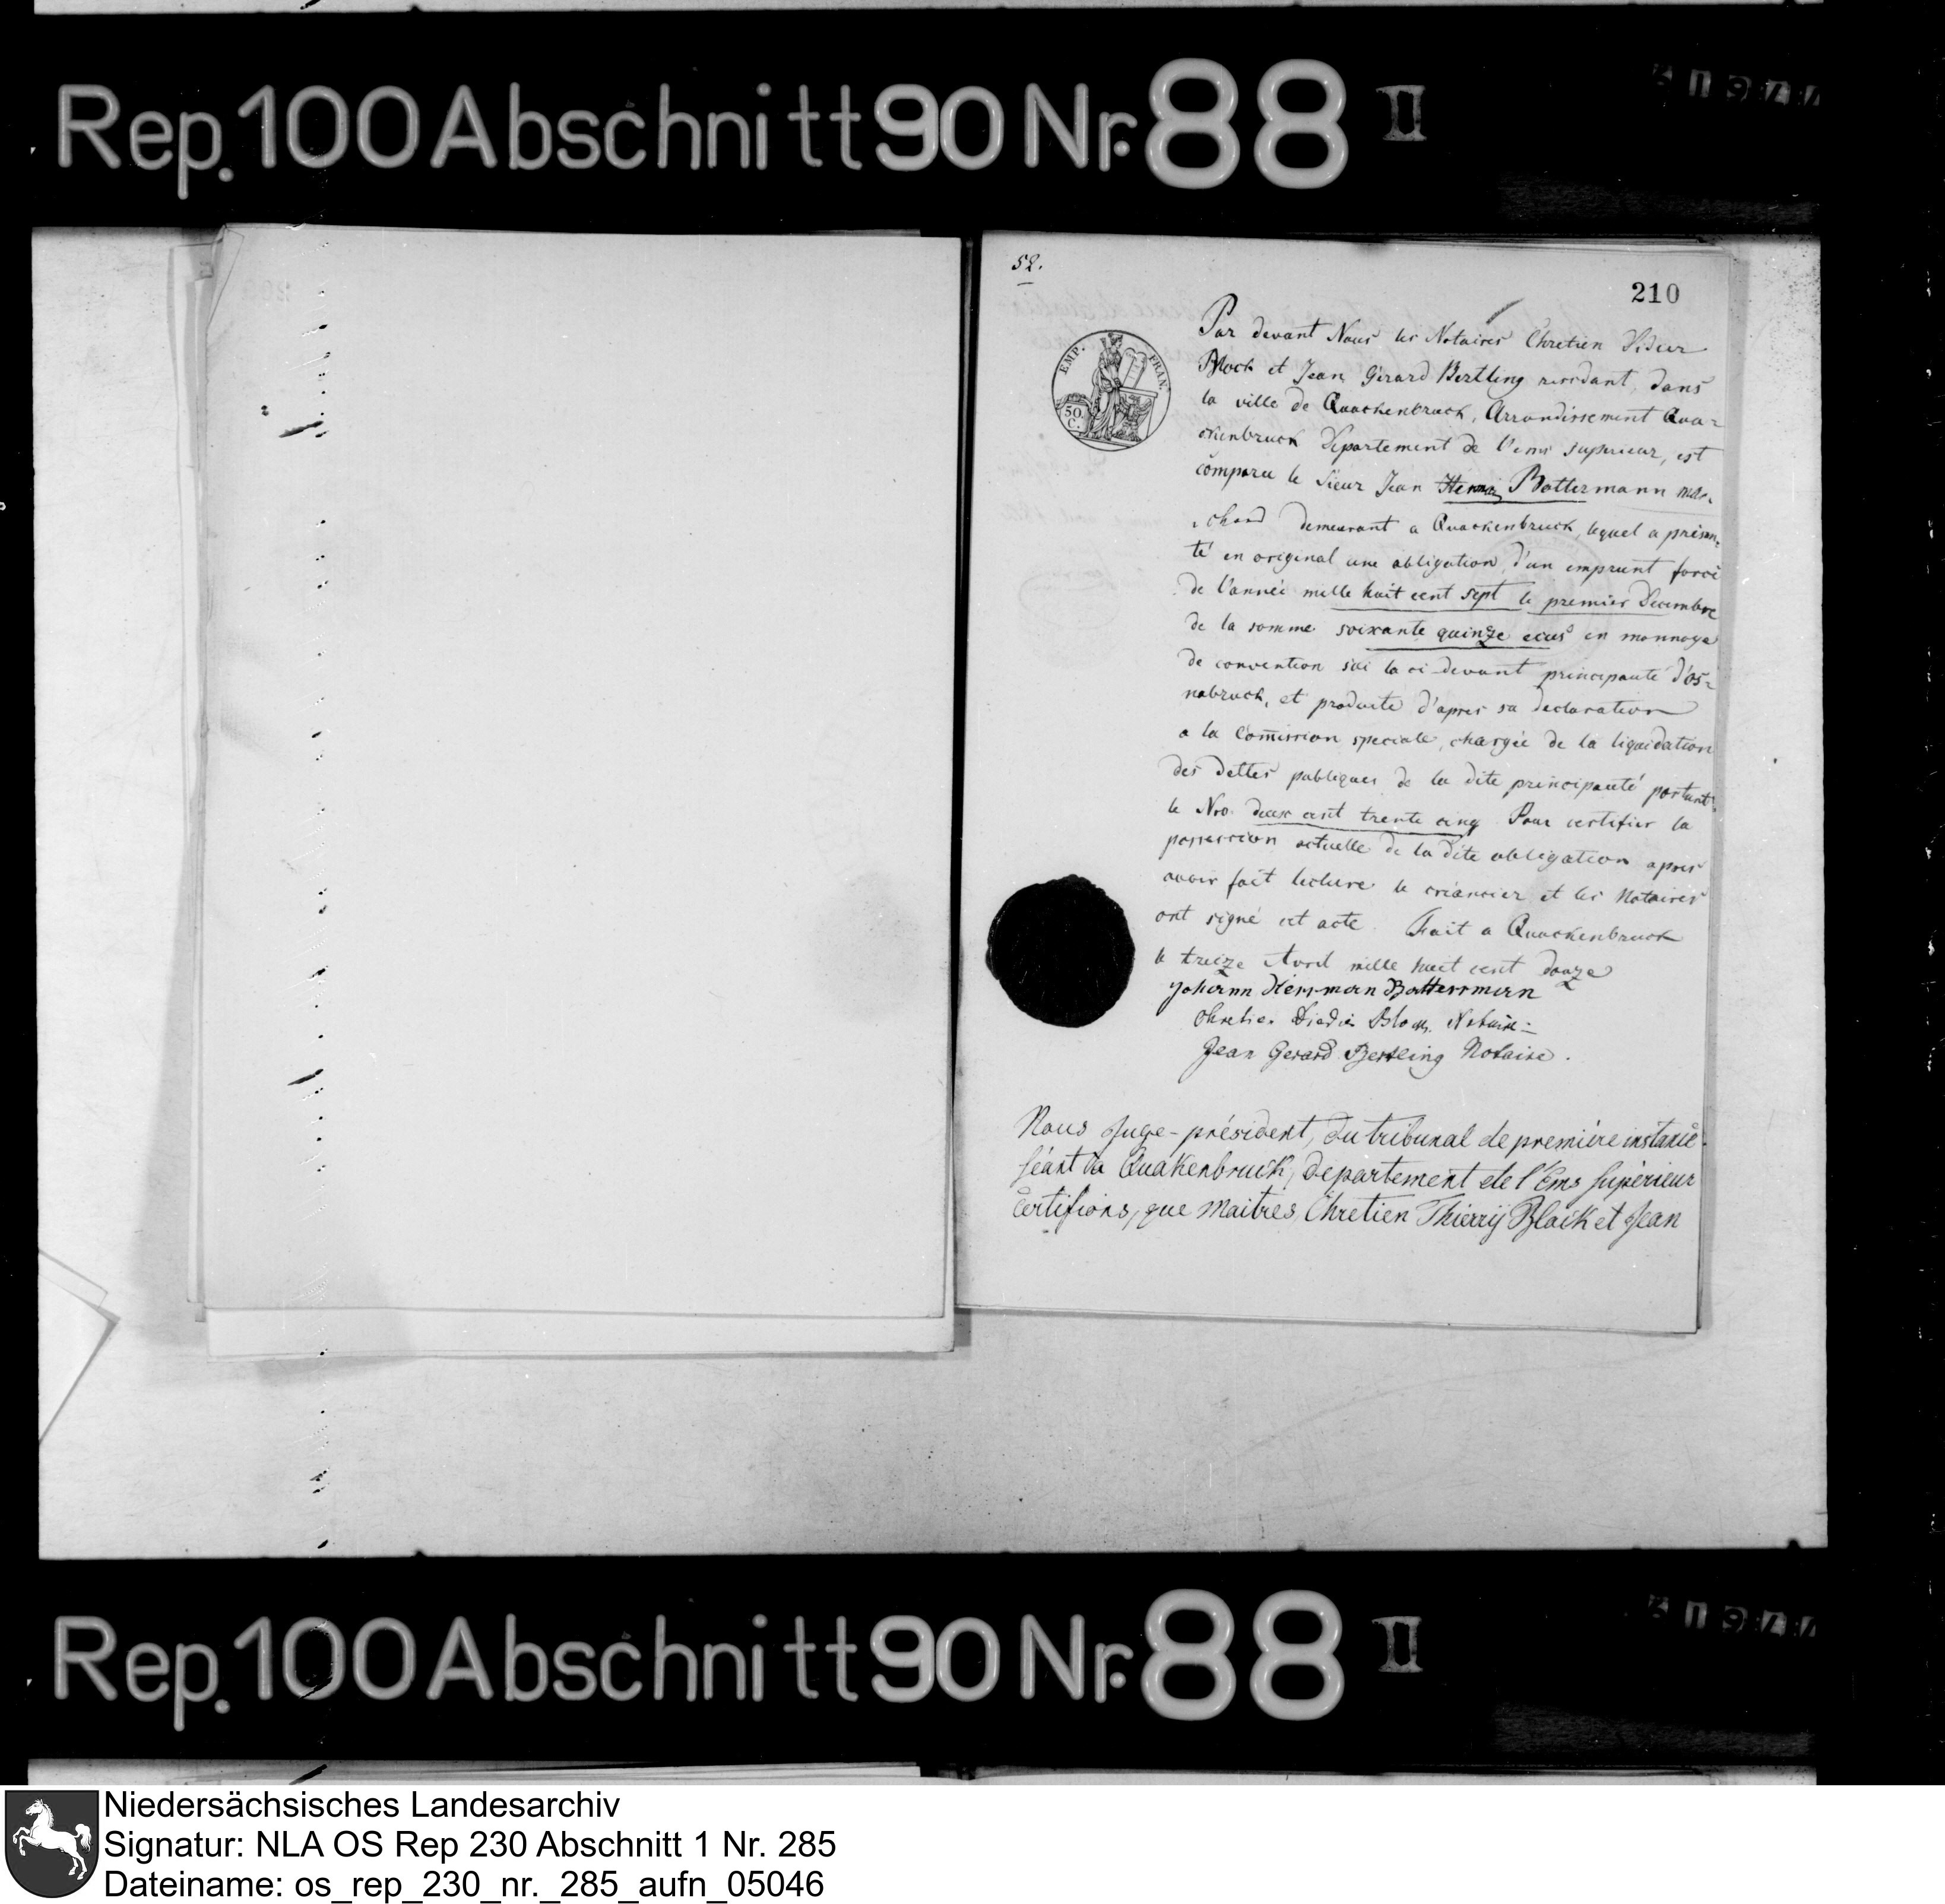 Rep. 100 Abschnitt 90 Nr. 88 II
52.
210
EMP. FRAN.
50 C.
Par devant Nous les Notaires Chretien
Block et Jean Gerard Bertling residant dans
la ville de Quackenbruck, Arrondissement Qua-
ckenbruck Departement de l'ems superieur, est
comparu le Sieur Jean Battermann mar-
chand demeurant a Quackenbruck, lequel a presen-
té en original une obligation d'un emprunt forcé
de l'année mille huit cent sept le premier Decembre
de la somme soixante quinze ecus en monnoye
de convention sur la ci-devant principauté d'Os-
nabruck, et produite d'apres sa declaration
a la Comission speciale, chargée de la liquidation
des dettes publiques de la dite principauté portant
le Nro. deux cent trente cinq Pour certifier la
possession actuelle de la dite obligation apres
avoir fait lecture le créancier et les Notaires
ont signé cet acte. Fait a Quackenbruck
le treize Avril mille huit cent douze
Johann Herrman Batterman
Block. Notaire
Jean Gerard Bertling Notaire.
Nous Juge-président, du tribunal de première instance
séant à Quakenbruck, departement de l'Ems Supérieur
Certifions, que Maitres, Chretien Thierrÿ Block et Jean
Rep. 100 Abschnitt 90 Nr. 88 II
Niedersächsisches Landesarchiv
Signatur: NLA OS Rep 230 Abschnitt 1 Nr. 285
Dateiname: os_rep_230_nr._285_aufn_05046